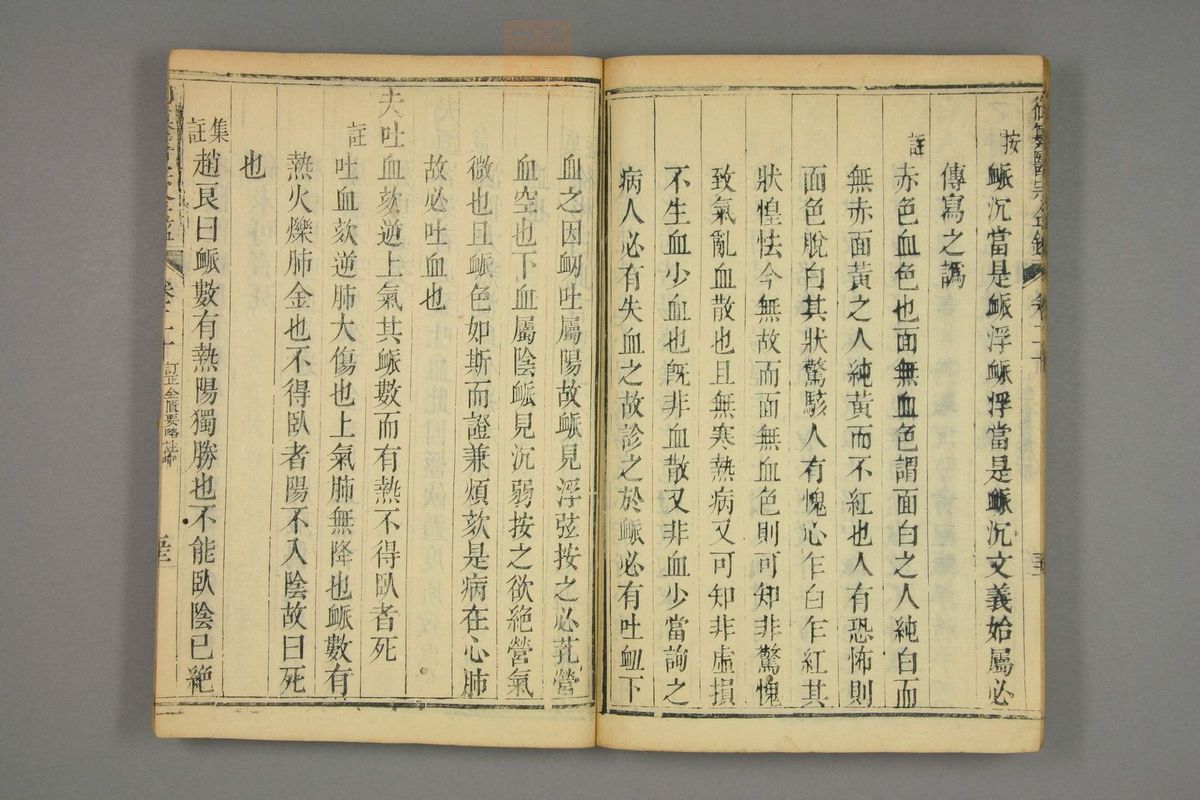 御纂醫宗金鑑 卷二十
按 䘑沉當是䘑浮䘑浮當是䘑沉文義始屬必
傳寫之譌
註 赤色血色也面無血色謂面白之人純白而
無赤面黃之人純黃而不紅也人有恐怖則
面色脫白其狀驚駭人有愧心乍白乍紅其
狀惶怯今無故而面無血色則可知非驚愧
致氣亂血散也且無寒熱病又可知非虛損
不生血少血也旣非血散又非血少當詢之
病人必有失血之故診之於䘑必有吐衄下
血之因衂吐屬陽故䘑見浮弦按之必芤營
血空也下血屬陰䘑見沉弱按之欲絶營氣
微也且䘑色如斯而證兼煩欬是病在心肺
故必吐血也
夫吐血欬逆上氣其䘑數而有熱不得臥者死
註 吐血欬逆肺大傷也上氣肺無降也䘑數有
熱火爍肺金也不得臥者陽不入陰故曰死
也
集註 趙良曰䘑數有熱陽獨勝也不能臥陰已絶
卷二十 訂正金匱要略注